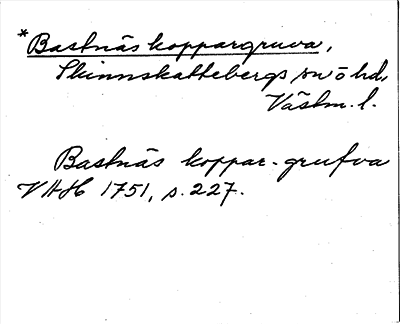 *Bastnäs koppargruva,
Skinnskattebergs sn o hd,
Västm. l.
Bastnäs koppar-grufva
VAH 1751, s. 227.